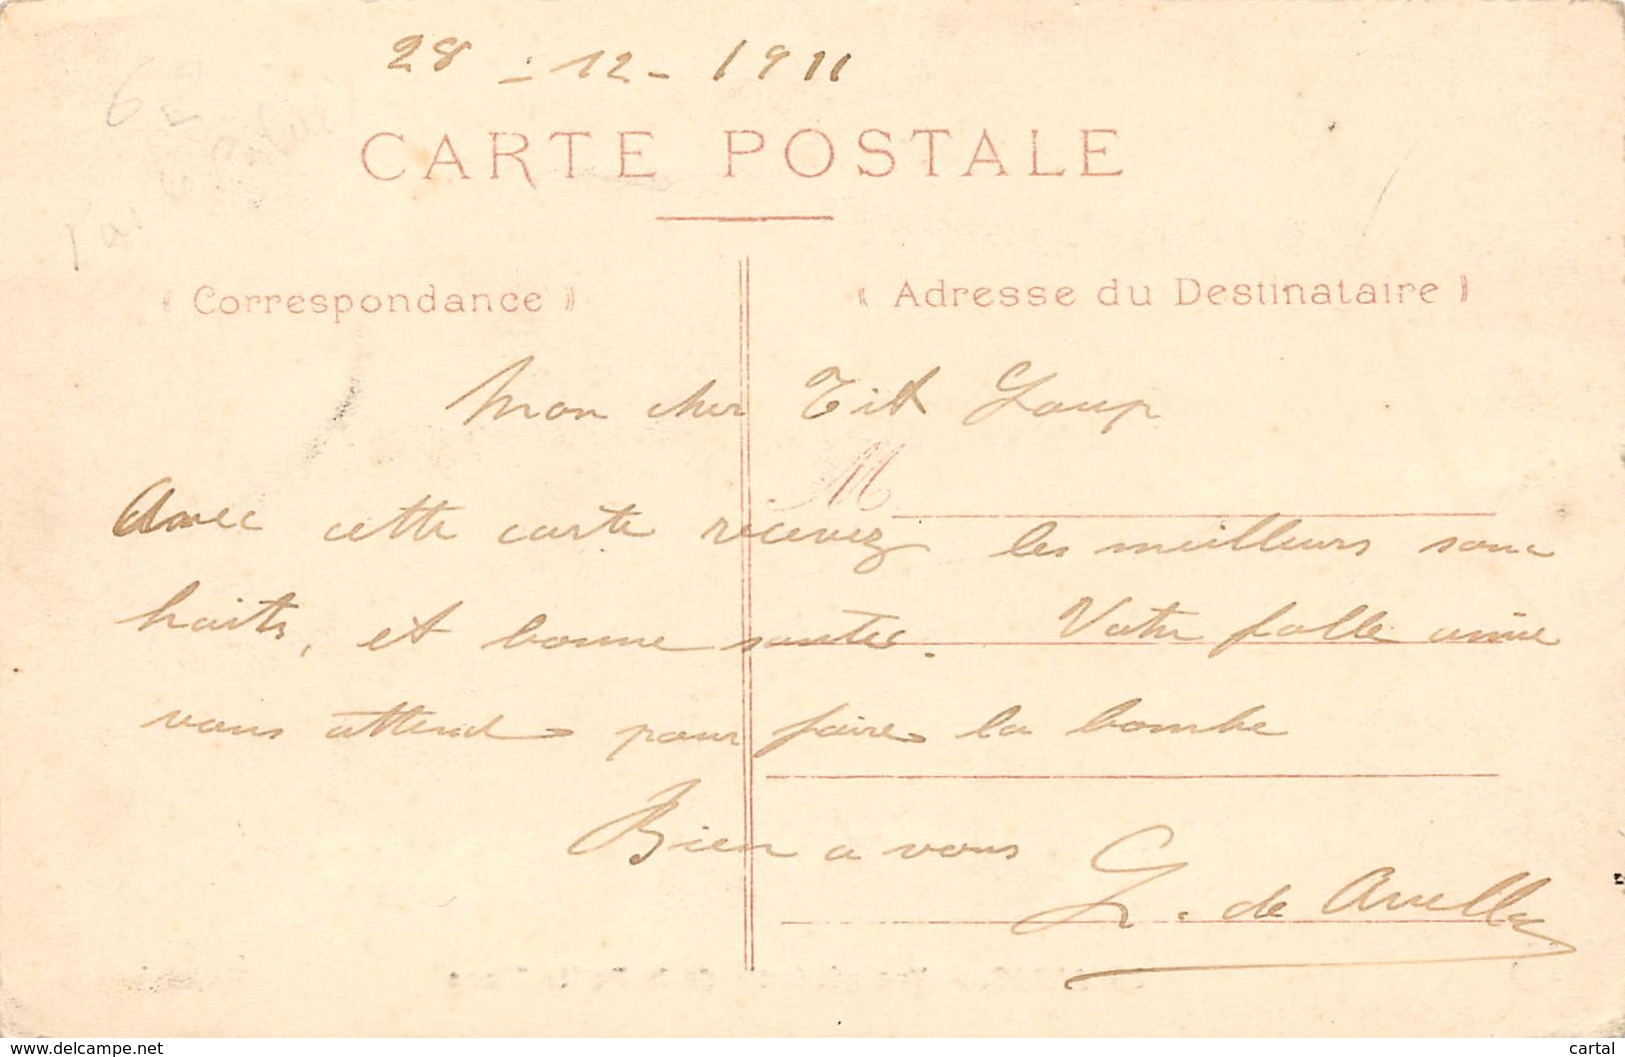 28 - 12 - 1911
62
CARTE POSTALE
Correspondance
Adresse du Destinataire
Mon cher Tit Loup
M
Avec cette carte recevez les meilleurs sou
haits, et bonne santée. Votre folle amie
vous attend pour faire la bombe
Bien a vous
G. de
www.delcampe.net
cartal